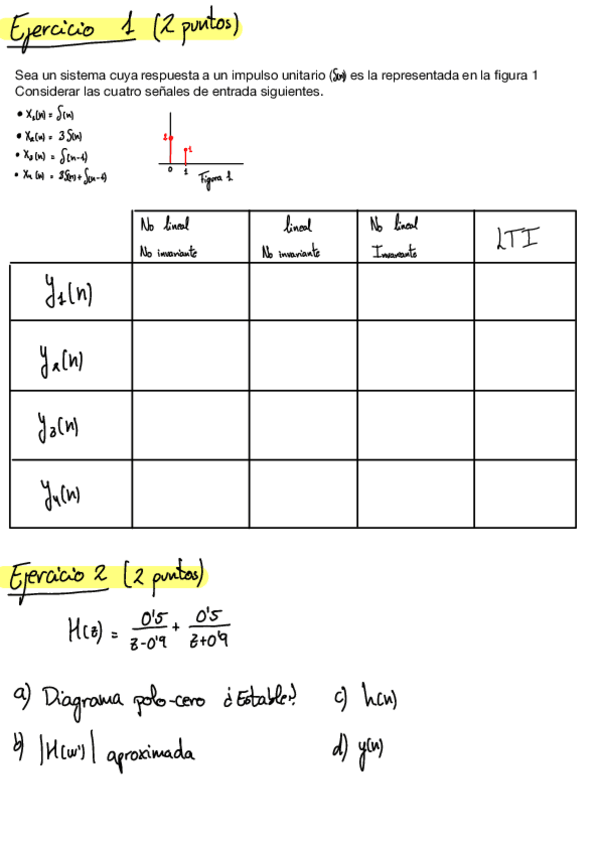 Ejercicio 1 (2 puntos)
Sea un sistema cuya respuesta a un impulso unitario (δ(n)) es la representada en la figura 1
Considerar las cuatro señales de entrada siguientes.
• X₁(n) = δ(n)
• X₂(n) = 3 δ(n)
• X₃(n) = δ(n-1)
• X₄(n) = 3δ(n) + δ(n-1)
2
1
0 1
Figura 1
No lineal No invariante
lineal No invariante
No lineal Invariante
LTI
y₁(n)
y₂(n)
y₃(n)
y₄(n)
Ejercicio 2 (2 puntos)
H(z) = 0'5/z-0'9 + 0'5/z+0'9
a) Diagrama polo-cero ¿Estable?
c) h(n)
b) |H(w')| aproximada
d) y(n)